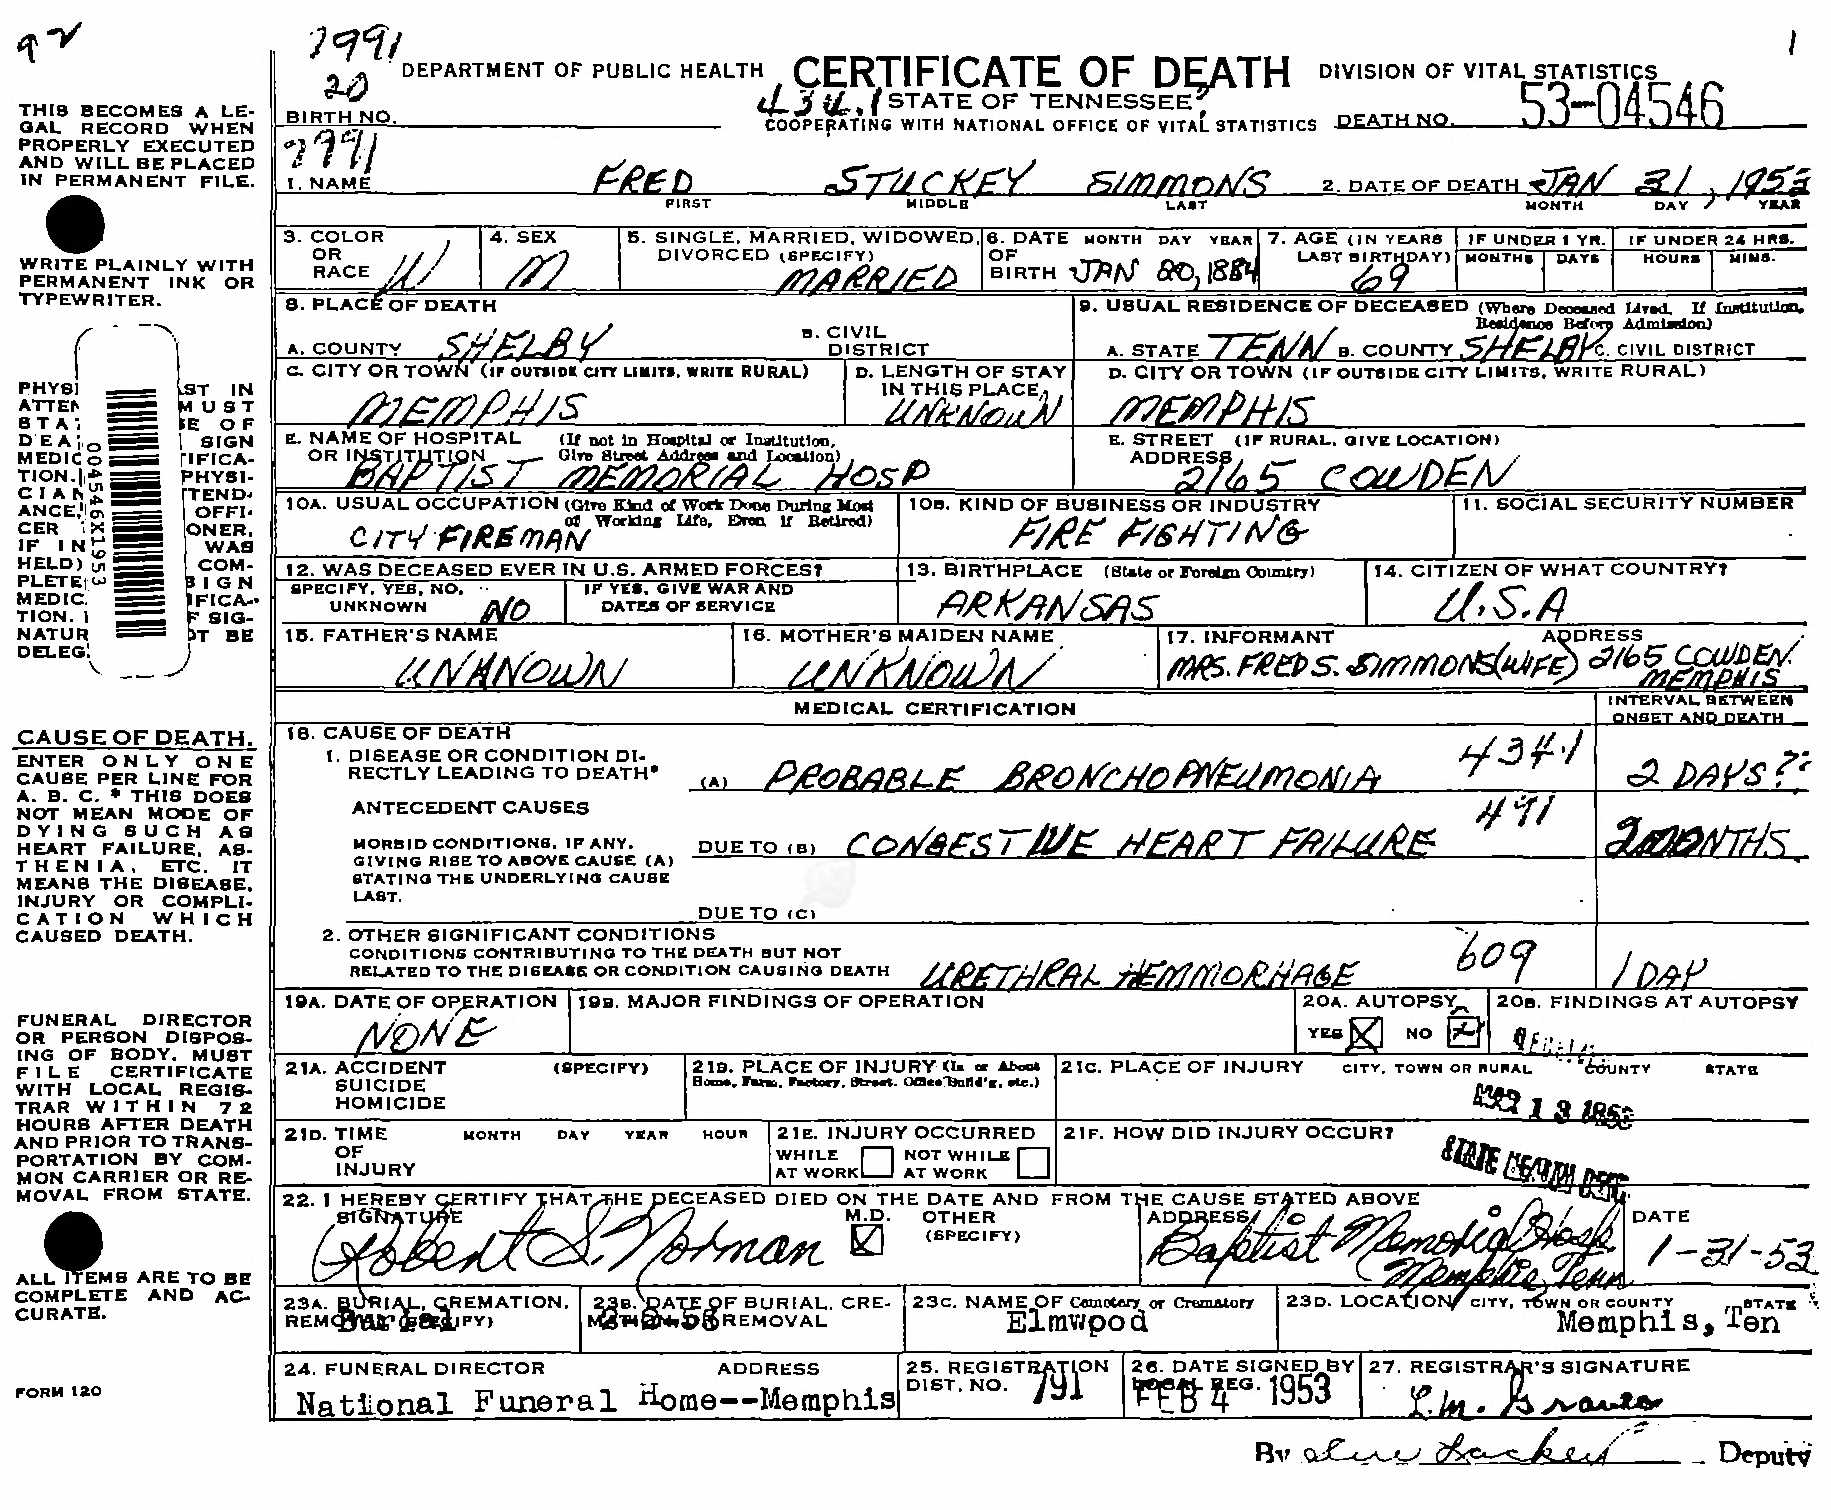 92
7991
1
20
DEPARTMENT OF PUBLIC HEALTH CERTIFICATE OF DEATH DIVISION OF VITAL STATISTICS
434.1 STATE OF TENNESSEE
BIRTH NO. COOPERATING WITH NATIONAL OFFICE OF VITAL STATISTICS DEATH NO. 53-04546
7991
1. NAME FRED STUCKEY SIMMONS 2. DATE OF DEATH JAN 31, 1953
FIRST MIDDLE LAST MONTH DAY YEAR
THIS BECOMES A LE-
GAL RECORD WHEN
PROPERLY EXECUTED
AND WILL BE PLACED
IN PERMANENT FILE.
WRITE PLAINLY WITH
PERMANENT INK OR
TYPEWRITER.
3. COLOR OR RACE W
4. SEX M
5. SINGLE, MARRIED, WIDOWED, DIVORCED (SPECIFY) MARRIED
6. DATE OF BIRTH MONTH DAY YEAR JAN 20, 1884
7. AGE (IN YEARS LAST BIRTHDAY) 69
IF UNDER 1 YR. MONTHS DAYS
IF UNDER 24 HRS. HOURS MINS.
8. PLACE OF DEATH
A. COUNTY SHELBY B. CIVIL DISTRICT
9. USUAL RESIDENCE OF DECEASED (Where Deceased Lived. If Institution, Residence Before Admission)
A. STATE TENN B. COUNTY SHELBY C. CIVIL DISTRICT
C. CITY OR TOWN (IF OUTSIDE CITY LIMITS, WRITE RURAL) MEMPHIS
D. LENGTH OF STAY IN THIS PLACE UNKNOWN
D. CITY OR TOWN (IF OUTSIDE CITY LIMITS, WRITE RURAL) MEMPHIS
E. NAME OF HOSPITAL OR INSTITUTION (If not in Hospital or Institution, Give Street Address and Location) BAPTIST MEMORIAL HOSP
E. STREET ADDRESS (IF RURAL, GIVE LOCATION) 2165 COWDEN
004546X1953
10A. USUAL OCCUPATION (Give Kind of Work Done During Most of Working Life, Even If Retired) CITY FIREMAN
10B. KIND OF BUSINESS OR INDUSTRY FIRE FIGHTING
11. SOCIAL SECURITY NUMBER
12. WAS DECEASED EVER IN U.S. ARMED FORCES?
SPECIFY, YES, NO, UNKNOWN NO
IF YES, GIVE WAR AND DATES OF SERVICE
13. BIRTHPLACE (State or Foreign Country) ARKANSAS
14. CITIZEN OF WHAT COUNTRY? U.S.A
15. FATHER'S NAME UNKNOWN
16. MOTHER'S MAIDEN NAME UNKNOWN
17. INFORMANT ADDRESS
MRS. FRED S. SIMMONS (WIFE) 2165 COWDEN. MEMPHIS
MEDICAL CERTIFICATION
INTERVAL BETWEEN ONSET AND DEATH
CAUSE OF DEATH.
ENTER ONLY ONE
CAUSE PER LINE FOR
A. B. C. * THIS DOES
NOT MEAN MODE OF
DYING SUCH AS
HEART FAILURE, AS-
THENIA, ETC. IT
MEANS THE DISEASE,
INJURY OR COMPLI-
CATION WHICH
CAUSED DEATH.
18. CAUSE OF DEATH
1. DISEASE OR CONDITION DI-
RECTLY LEADING TO DEATH* (A) PROBABLE BRONCHOPNEUMONIA 434.1 2 DAYS??
ANTECEDENT CAUSES 491
MORBID CONDITIONS, IF ANY,
GIVING RISE TO ABOVE CAUSE (A)
STATING THE UNDERLYING CAUSE
LAST.
DUE TO (B) CONGESTIVE HEART FAILURE 2 MONTHS
DUE TO (C)
2. OTHER SIGNIFICANT CONDITIONS
CONDITIONS CONTRIBUTING TO THE DEATH BUT NOT
RELATED TO THE DISEASE OR CONDITION CAUSING DEATH URETHRAL HEMMORHAGE 609 1 DAY
FUNERAL DIRECTOR
OR PERSON DISPOS-
ING OF BODY, MUST
FILE CERTIFICATE
WITH LOCAL REGIS-
TRAR WITHIN 72
HOURS AFTER DEATH
AND PRIOR TO TRANS-
PORTATION BY COM-
MON CARRIER OR RE-
MOVAL FROM STATE.
19A. DATE OF OPERATION NONE
19B. MAJOR FINDINGS OF OPERATION
20A. AUTOPSY YES NO
20B. FINDINGS AT AUTOPSY
21A. ACCIDENT SUICIDE HOMICIDE (SPECIFY)
21B. PLACE OF INJURY (In or About Home, Farm, Factory, Street, Office Build'g, etc.)
21C. PLACE OF INJURY CITY, TOWN OR RURAL COUNTY STATE
13 1953
21D. TIME OF INJURY MONTH DAY YEAR HOUR
21E. INJURY OCCURRED WHILE AT WORK NOT WHILE AT WORK
21F. HOW DID INJURY OCCUR?
STATE HEALTH DEPT.
22. I HEREBY CERTIFY THAT THE DECEASED DIED ON THE DATE AND FROM THE CAUSE STATED ABOVE
SIGNATURE Robert S. Norman M.D. OTHER (SPECIFY)
ADDRESS Baptist Memorial Hosp. Memphis, Tenn
DATE 1-31-53
ALL ITEMS ARE TO BE
COMPLETE AND AC-
CURATE.
23A. BURIAL, CREMATION, REMOVAL (SPECIFY) Burial
23B. DATE OF BURIAL, CREMATION OR REMOVAL 2-2-53
23C. NAME OF Cemetery or Crematory Elmwpod
23D. LOCATION CITY, TOWN OR COUNTY STATE Memphis, Ten
24. FUNERAL DIRECTOR ADDRESS
National Funeral Home--Memphis
25. REGISTRATION DIST. NO. 791
26. DATE SIGNED BY LOCAL REG. FEB 4 1953
27. REGISTRAR'S SIGNATURE L.M. Graves
FORM 120
By Deputy